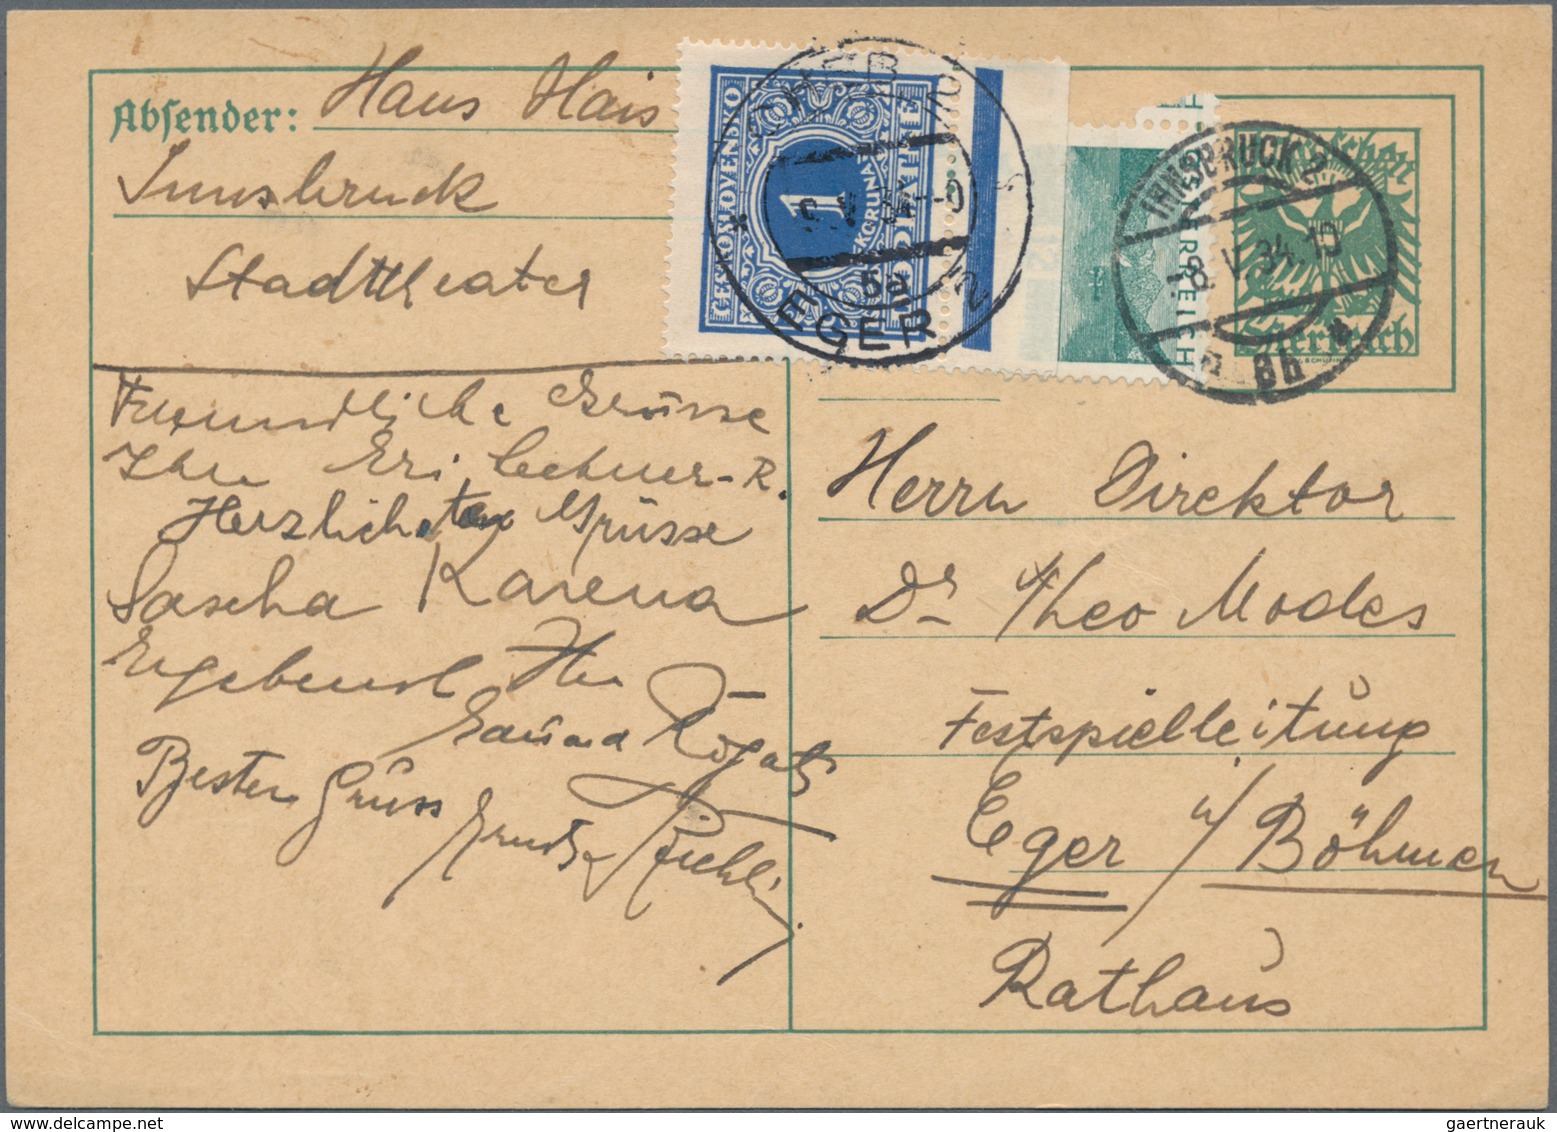 Absender: Hans Hais
Innsbruck
Stadttheater
Freundliche Grüsse
Ihre Eri Lechner-R.
Herzlichste Grüsse
Sascha Karena
Ergebenst Ihr
Besten Gruss
ČESKOSLOVENSKO
1
KORUNA
DOPLATIT
CHEB 2
EGER 2
5a
ÖSTERREICH
INNSBRUCK 2
-8.V.34.19
8b
Österreich
Herrn Direktor
Dr Theo Modes
Festspielleitung
Eger i/Böhmen
Rathaus
gaertnerauk